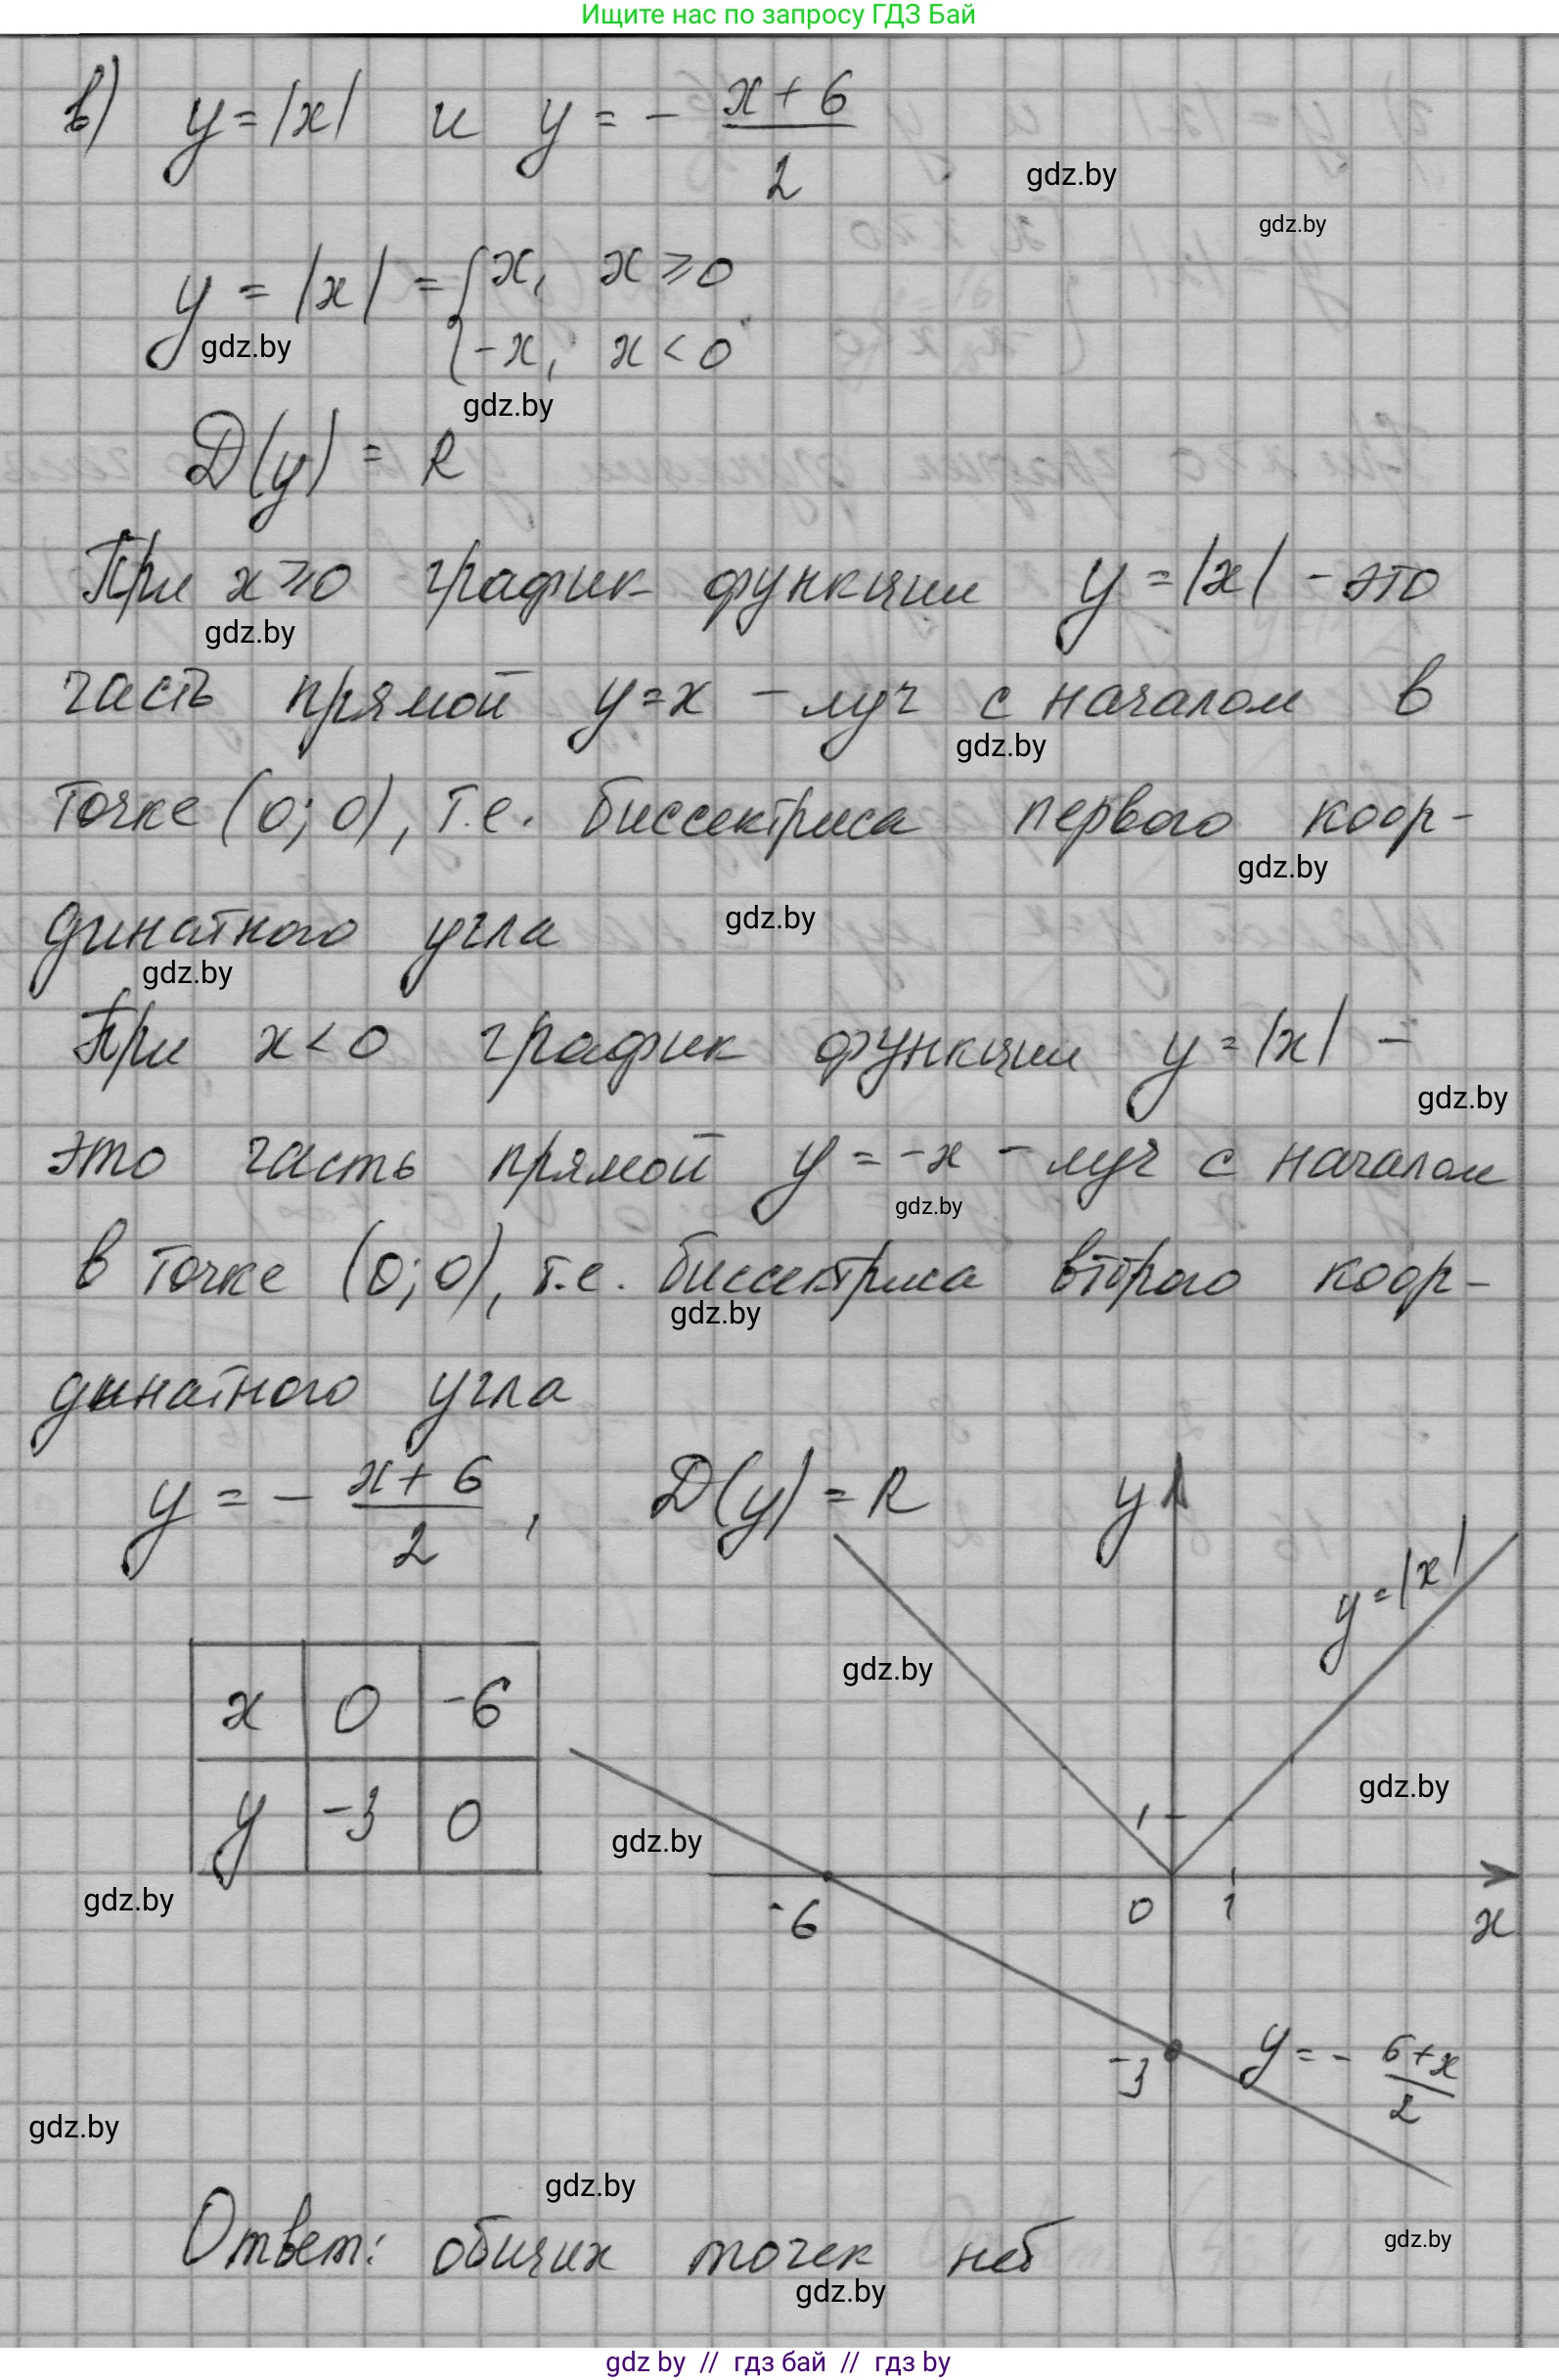 Ищите нас по запросу ГДЗ Бай
в) y = |x| и y = - x + 6 / 2
gdz.by
gdz.by
y = |x| = { x, x ⩾ 0
{ -x, x < 0
gdz.by
gdz.by
D(y) = R
При x ⩾ 0 график функции y = |x| - это
gdz.by
часть прямой y = x - луч с началом в
gdz.by
точке (0; 0), т.е. биссектриса первого коор-
gdz.by
динатного угла
gdz.by
gdz.by
При x < 0 график функции y = |x| -
gdz.by
это часть прямой y = -x - луч с началом
gdz.by
в точке (0; 0), т.е. биссектриса второго коор-
gdz.by
динатного угла
y = - x + 6 / 2 , D(y) = R
y
y = |x|
gdz.by
x 0 -6
y -3 0
gdz.by
gdz.by
gdz.by
1
-6 0 1 x
-3
y = - 6 + x / 2
gdz.by
gdz.by
Ответ: общих точек нет
gdz.by
gdz.by
gdz by // гдз бай // гдз by